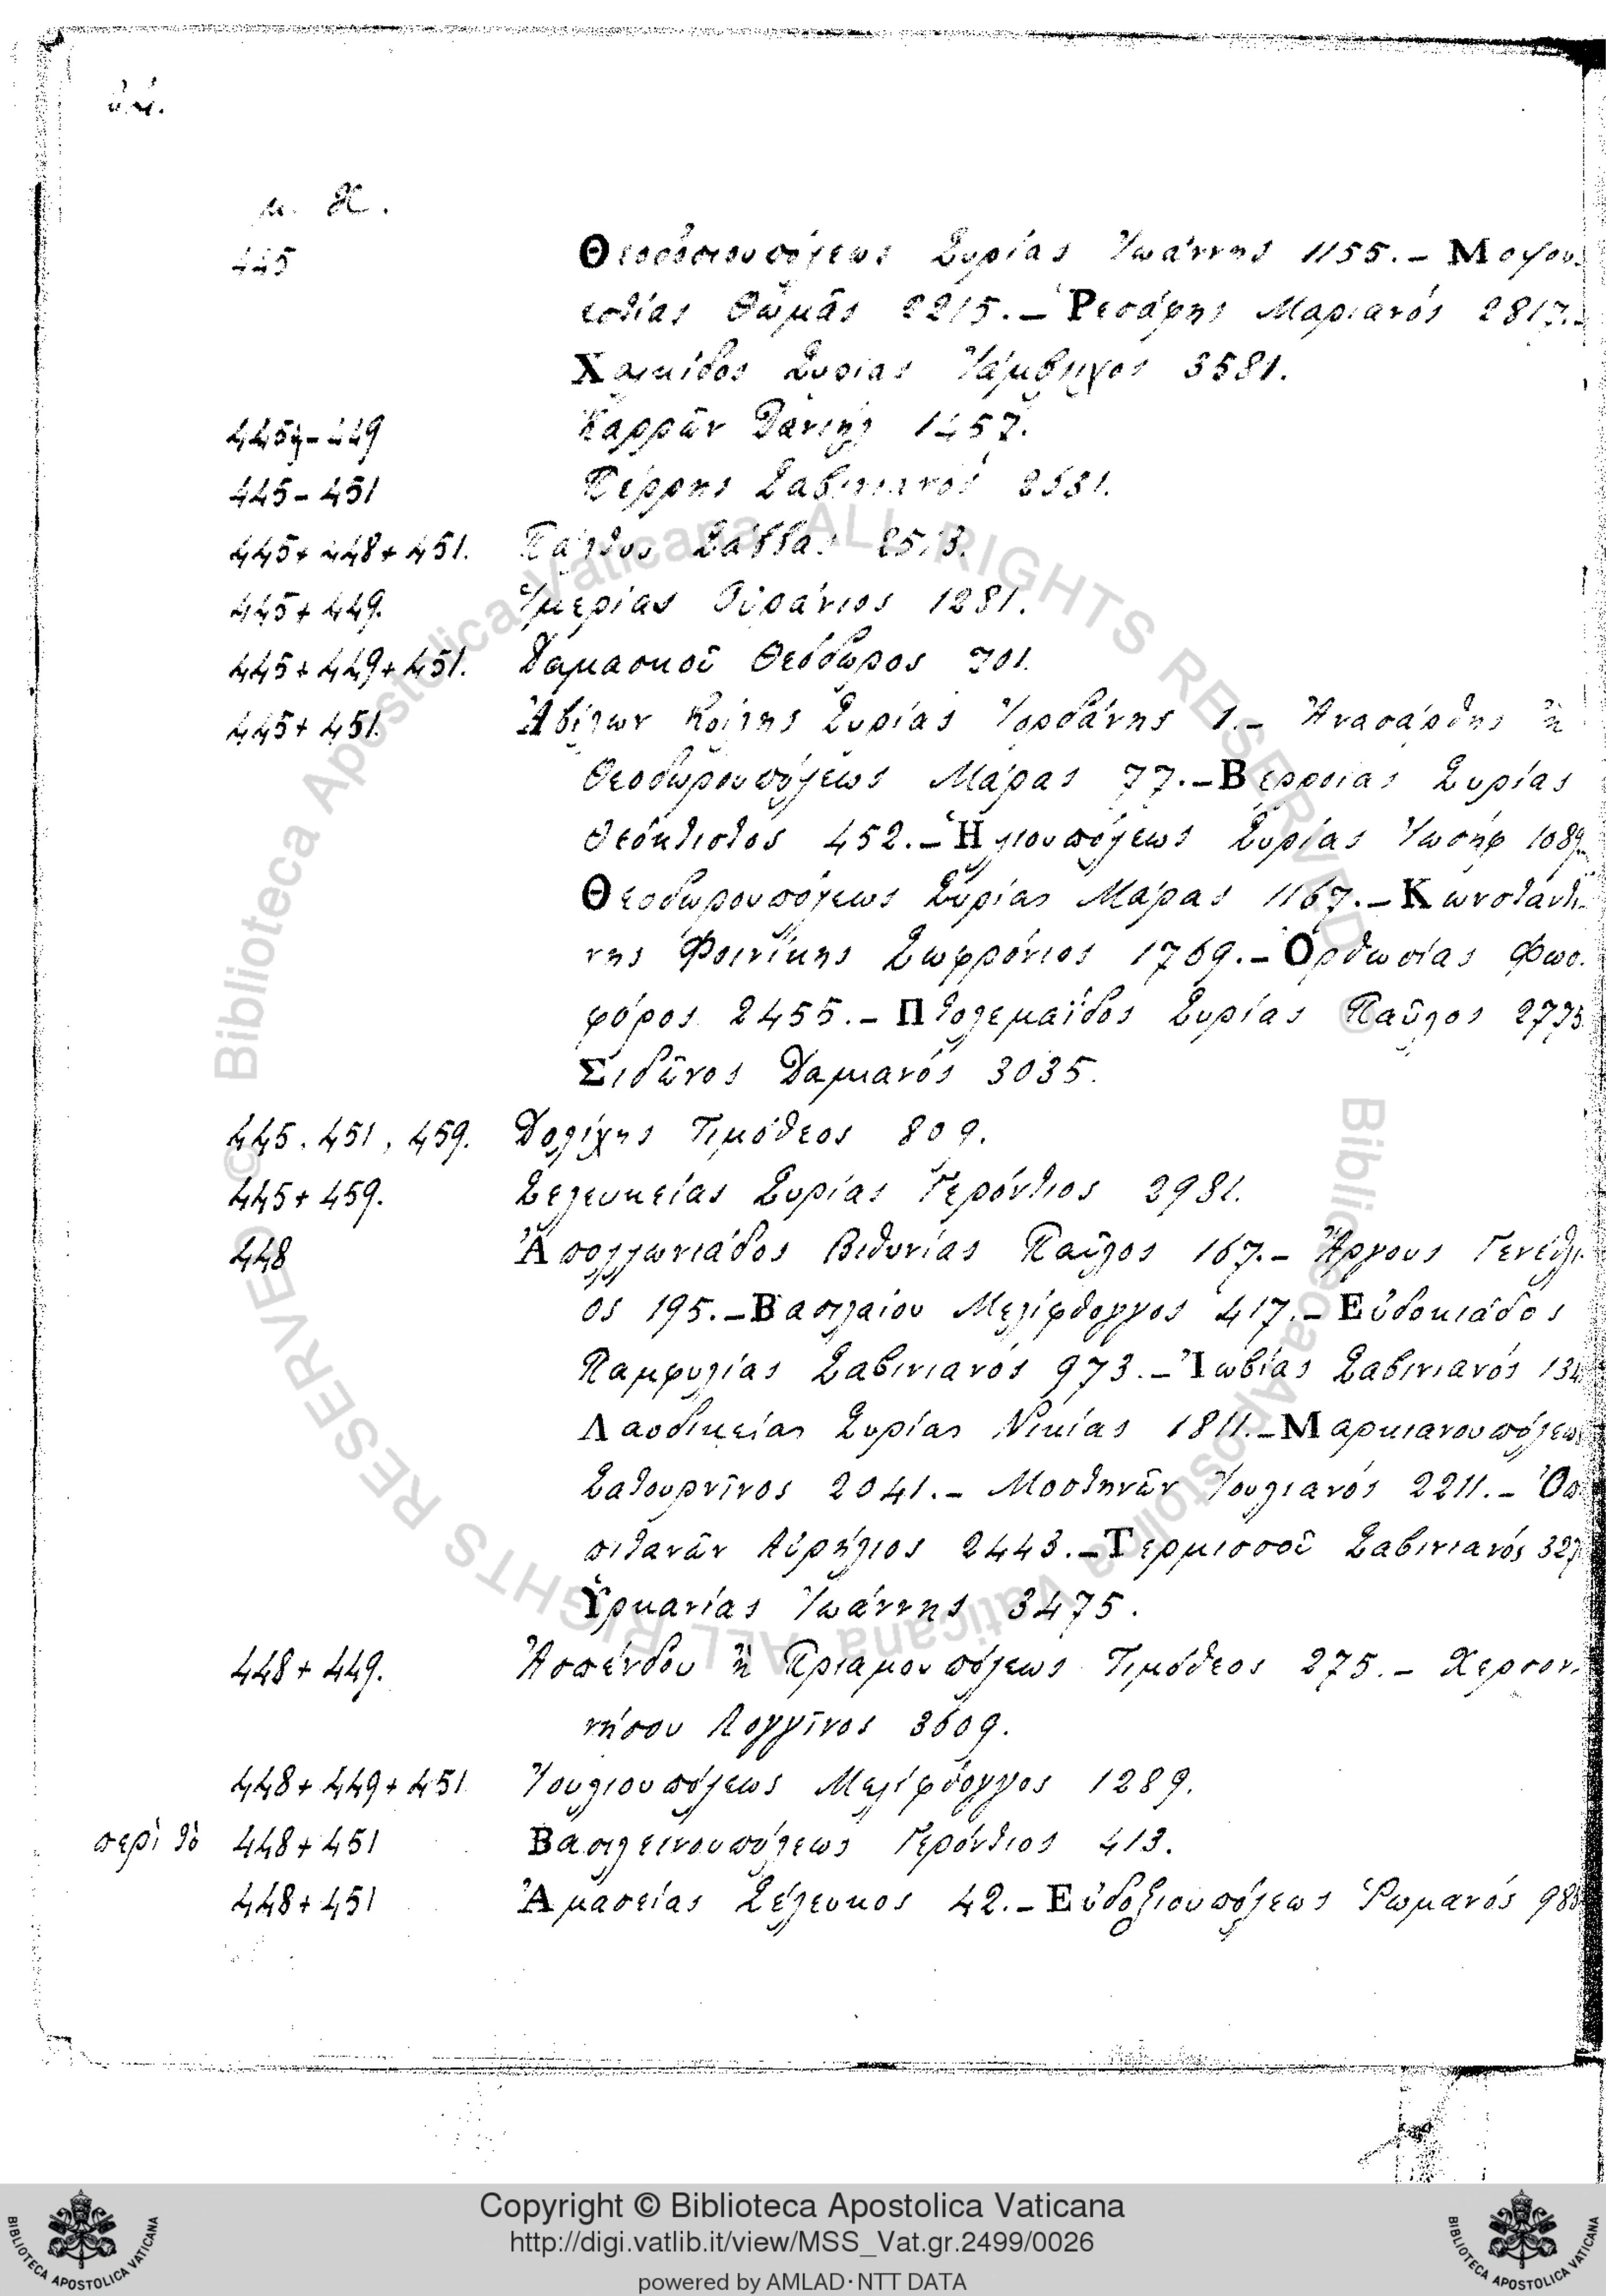 μ. Χ.
445 Θεοδοσιουπόλεως Συρίας Ἰωάννης 1155.– Μοψου
εστίας Θωμᾶς 2215.– Ῥεσάφης Μαριανός 2817.–
Χαλκίδος Συρίας Ἰάμβλιχος 3581.
445–449 Καρρῶν Δανιήλ 1457.
445–451 Πέρρης Σαβινιανός 2631.
445+448+451. Πάλτου Σάββας 2513.
445+449. Ἱμερίας Οὐράνιος 1281.
445+449+451. Δαμασκοῦ Θεόδωρος 701.
445+451. Ἀβίλων Κοίλης Συρίας Ἰορδάνης 1.– Ἀνασάρθης ἢ
Θεοδωρουπόλεως Μάρας 77.– Βερροίας Συρίας
Θεόκτιστος 452.– Ἡλιουπόλεως Συρίας Ἰωσήφ 1089.
Θεοδωρουπόλεως Συρίας Μάρας 1167.– Κωνσταντί
νης Φοινίκης Σωφρόνιος 1769.– Ὀρθωσίας Φωσ
φόρος 2455.– Πτολεμαΐδος Συρίας Παῦλος 2773
Σιδῶνος Δαμιανός 3035.
445, 451, 459. Δολίχης Τιμόθεος 809.
445+459. Σελευκείας Συρίας Γερόντιος 2981.
448 Ἀπολλωνιάδος Βιθυνίας Παῦλος 167.– Ἄργους Γενέθλι
ος 195.– Βασιλαίου Μελίφθογγος 417.– Εὐδοκιάδος
Παμφυλίας Σαβινιανός 973.– Ἰωβίας Σαβινιανός
Λαοδικείας Συρίας Νικίας 1811.– Μαρκιανουπόλεως
Σατουρνῖνος 2041.– Μοστηνῶν Ἰουλιανός 2211.– Ὀσ
πιτανῶν Αὐρήλιος 2443.– Τερμισσοῦ Σαβινιανός
Ὑρκανίας Ἰωάννης 3475.
448+449. Ἀσπένδου ἢ Πριαμουπόλεως Τιμόθεος 275.– Χερσον
νήσου Λογγῖνος 3609.
448+449+451 Ἰουλιουπόλεως Μελίφθογγος 1289.
περὶ τὸ 448+451 Βασιλεινουπόλεως Γερόντιος 413.
448+451 Ἀμασείας Σέλευκος 42.– Εὐδοξιουπόλεως Ῥωμανός
© Biblioteca Apostolica Vaticana ALL RIGHTS RESERVED
© Biblioteca Apostolica Vaticana ALL RIGHTS RESERVED
Copyright © Biblioteca Apostolica Vaticana
http://digi.vatlib.it/view/MSS_Vat.gr.2499/0026
powered by AMLAD·NTT DATA
BIBLIOTECA APOSTOLICA VATICANA
BIBLIOTECA APOSTOLICA VATICANA